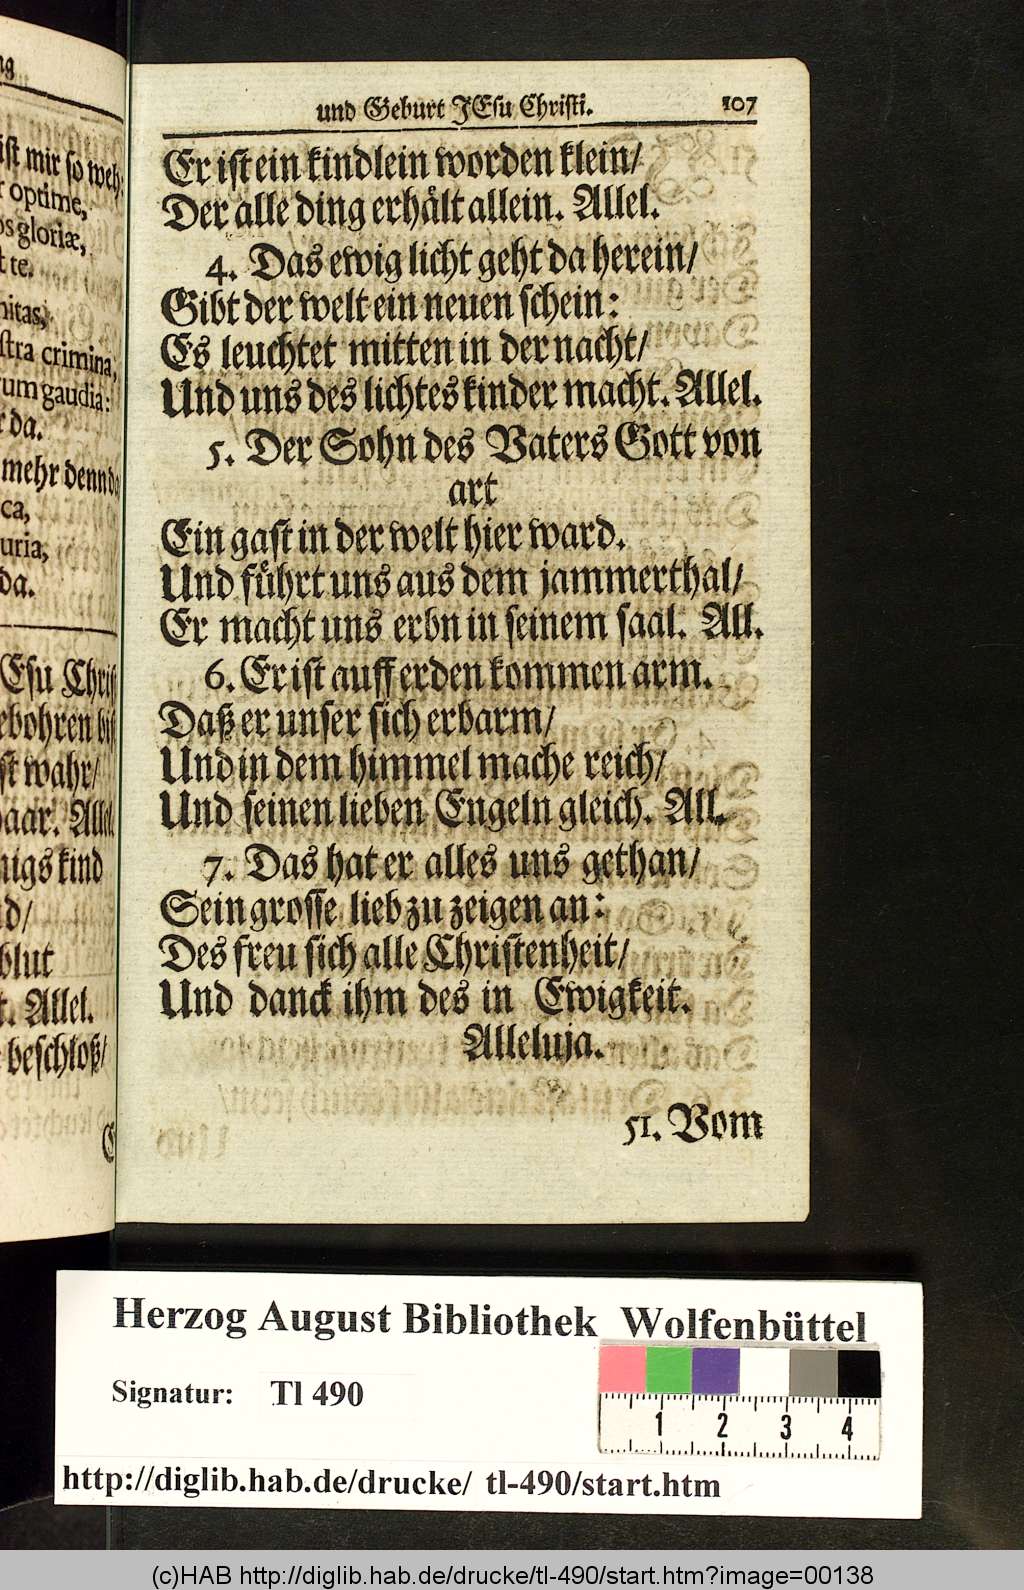 ng
ist mir so weh:
optime,
gloriæ,
t te.
nitas,
stra crimina,
rum gaudia:
da.
mehr denn
ca,
uria,
da.
Esu Chris
ebohren bist
st wahr/
paar. Allel.
nigs kind
nd/
blut
t. Allel.
beschloß/
E
und Geburt JEsu Christi. 107
Er ist ein kindlein worden klein/
Der alle ding erhält allein. Allel.
4. Das ewig licht geht da herein/
Gibt der welt ein neuen schein:
Es leuchtet mitten in der nacht/
Und uns des lichtes kinder macht. Allel.
5. Der Sohn des Vaters Gott von
art
Ein gast in der welt hier ward.
Und führt uns aus dem jammerthal/
Er macht uns erbn in seinem saal. All.
6. Er ist auff erden kommen arm.
Daß er unser sich erbarm/
Und in dem himmel mache reich/
Und seinen lieben Engeln gleich. All.
7. Das hat er alles uns gethan/
Sein grosse lieb zu zeigen an:
Des freu sich alle Christenheit/
Und danck ihm des in Ewigkeit.
Alleluja.
51. Vom
Herzog August Bibliothek Wolfenbüttel
Signatur: Tl 490
1 2 3 4
http://diglib.hab.de/drucke/ tl-490/start.htm
(c)HAB http://diglib.hab.de/drucke/tl-490/start.htm?image=00138